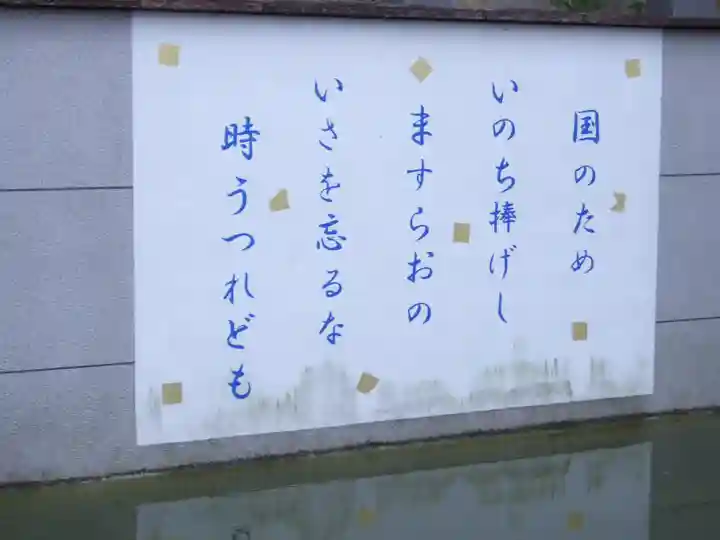 国のため
いのち捧げし
ますらおの
いさを忘るな
時うつれども